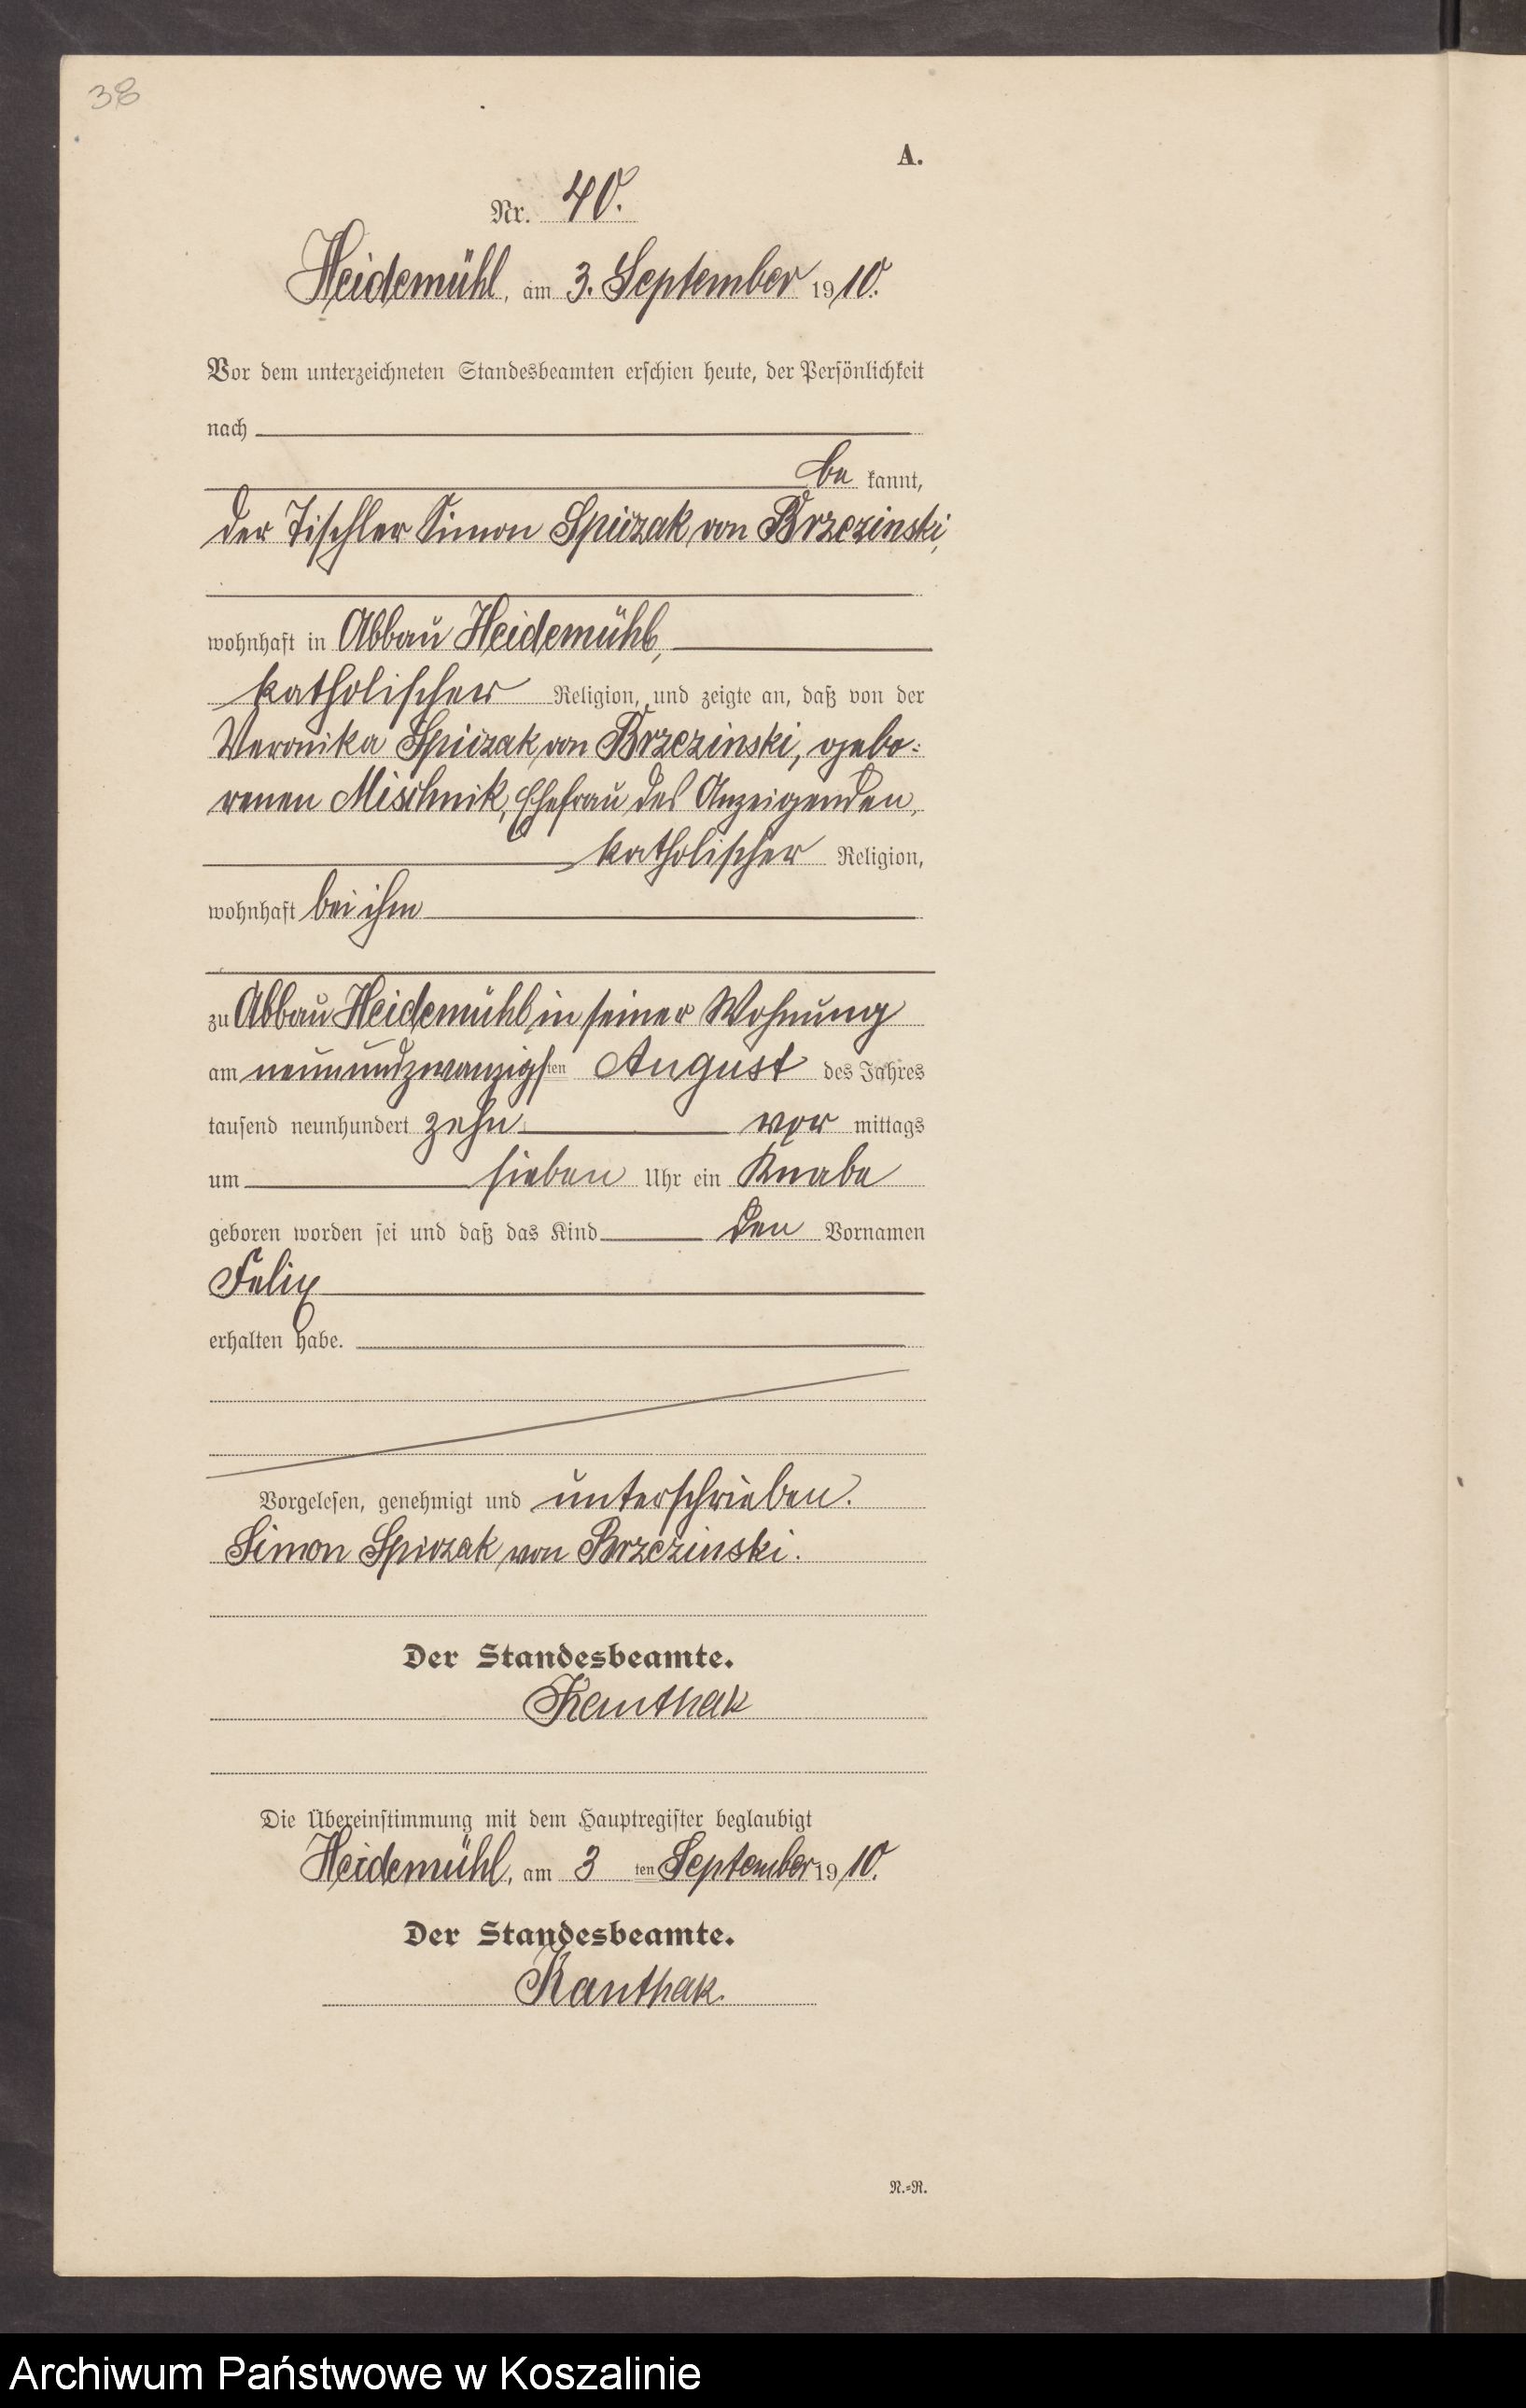 38
A.
Nr. 40.
Heidemühl, am 3. September 1910.
Vor dem unterzeichneten Standesbeamten erschien heute, der Persönlichkeit
nach
be kannt,
der Tischler Simon Spiczak von Brzezinski,
wohnhaft in Abbau Heidemühl,
katholischer Religion, und zeigte an, daß von der
Veronika Spiczak von Brzezinski, gebo-
renen Mischnik, Ehefrau des Anzeigenden,
katholischer Religion,
wohnhaft bei ihm
zu Abbau Heidemühl in seiner Wohnung
am neunundzwanzigsten August des Jahres
tausend neunhundert zehn vor mittags
um sieben Uhr ein Knabe
geboren worden sei und daß das Kind den Vornamen
Felix
erhalten habe.
Vorgelesen, genehmigt und unterschrieben.
Simon Spiczak von Brzezinski.
Der Standesbeamte.
Kanthak
Die Übereinstimmung mit dem Hauptregister beglaubigt
Heidemühl, am 3 ten September 1910.
Der Standesbeamte.
Kanthak.
N.=R.
Archiwum Państwowe w Koszalinie